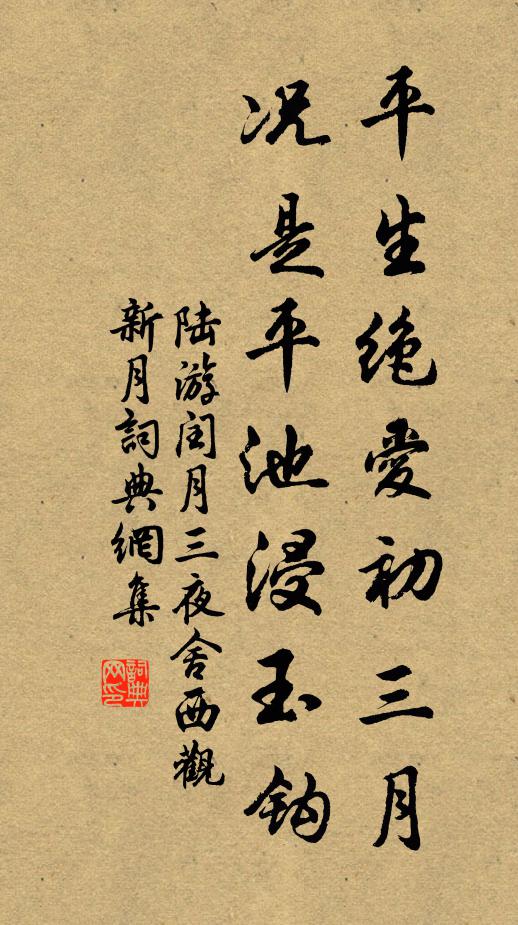 平生絶愛初三月
况是平池浸玉鈎
陆游闰月三夜舍西觀
新月詞典網集
詞典网印